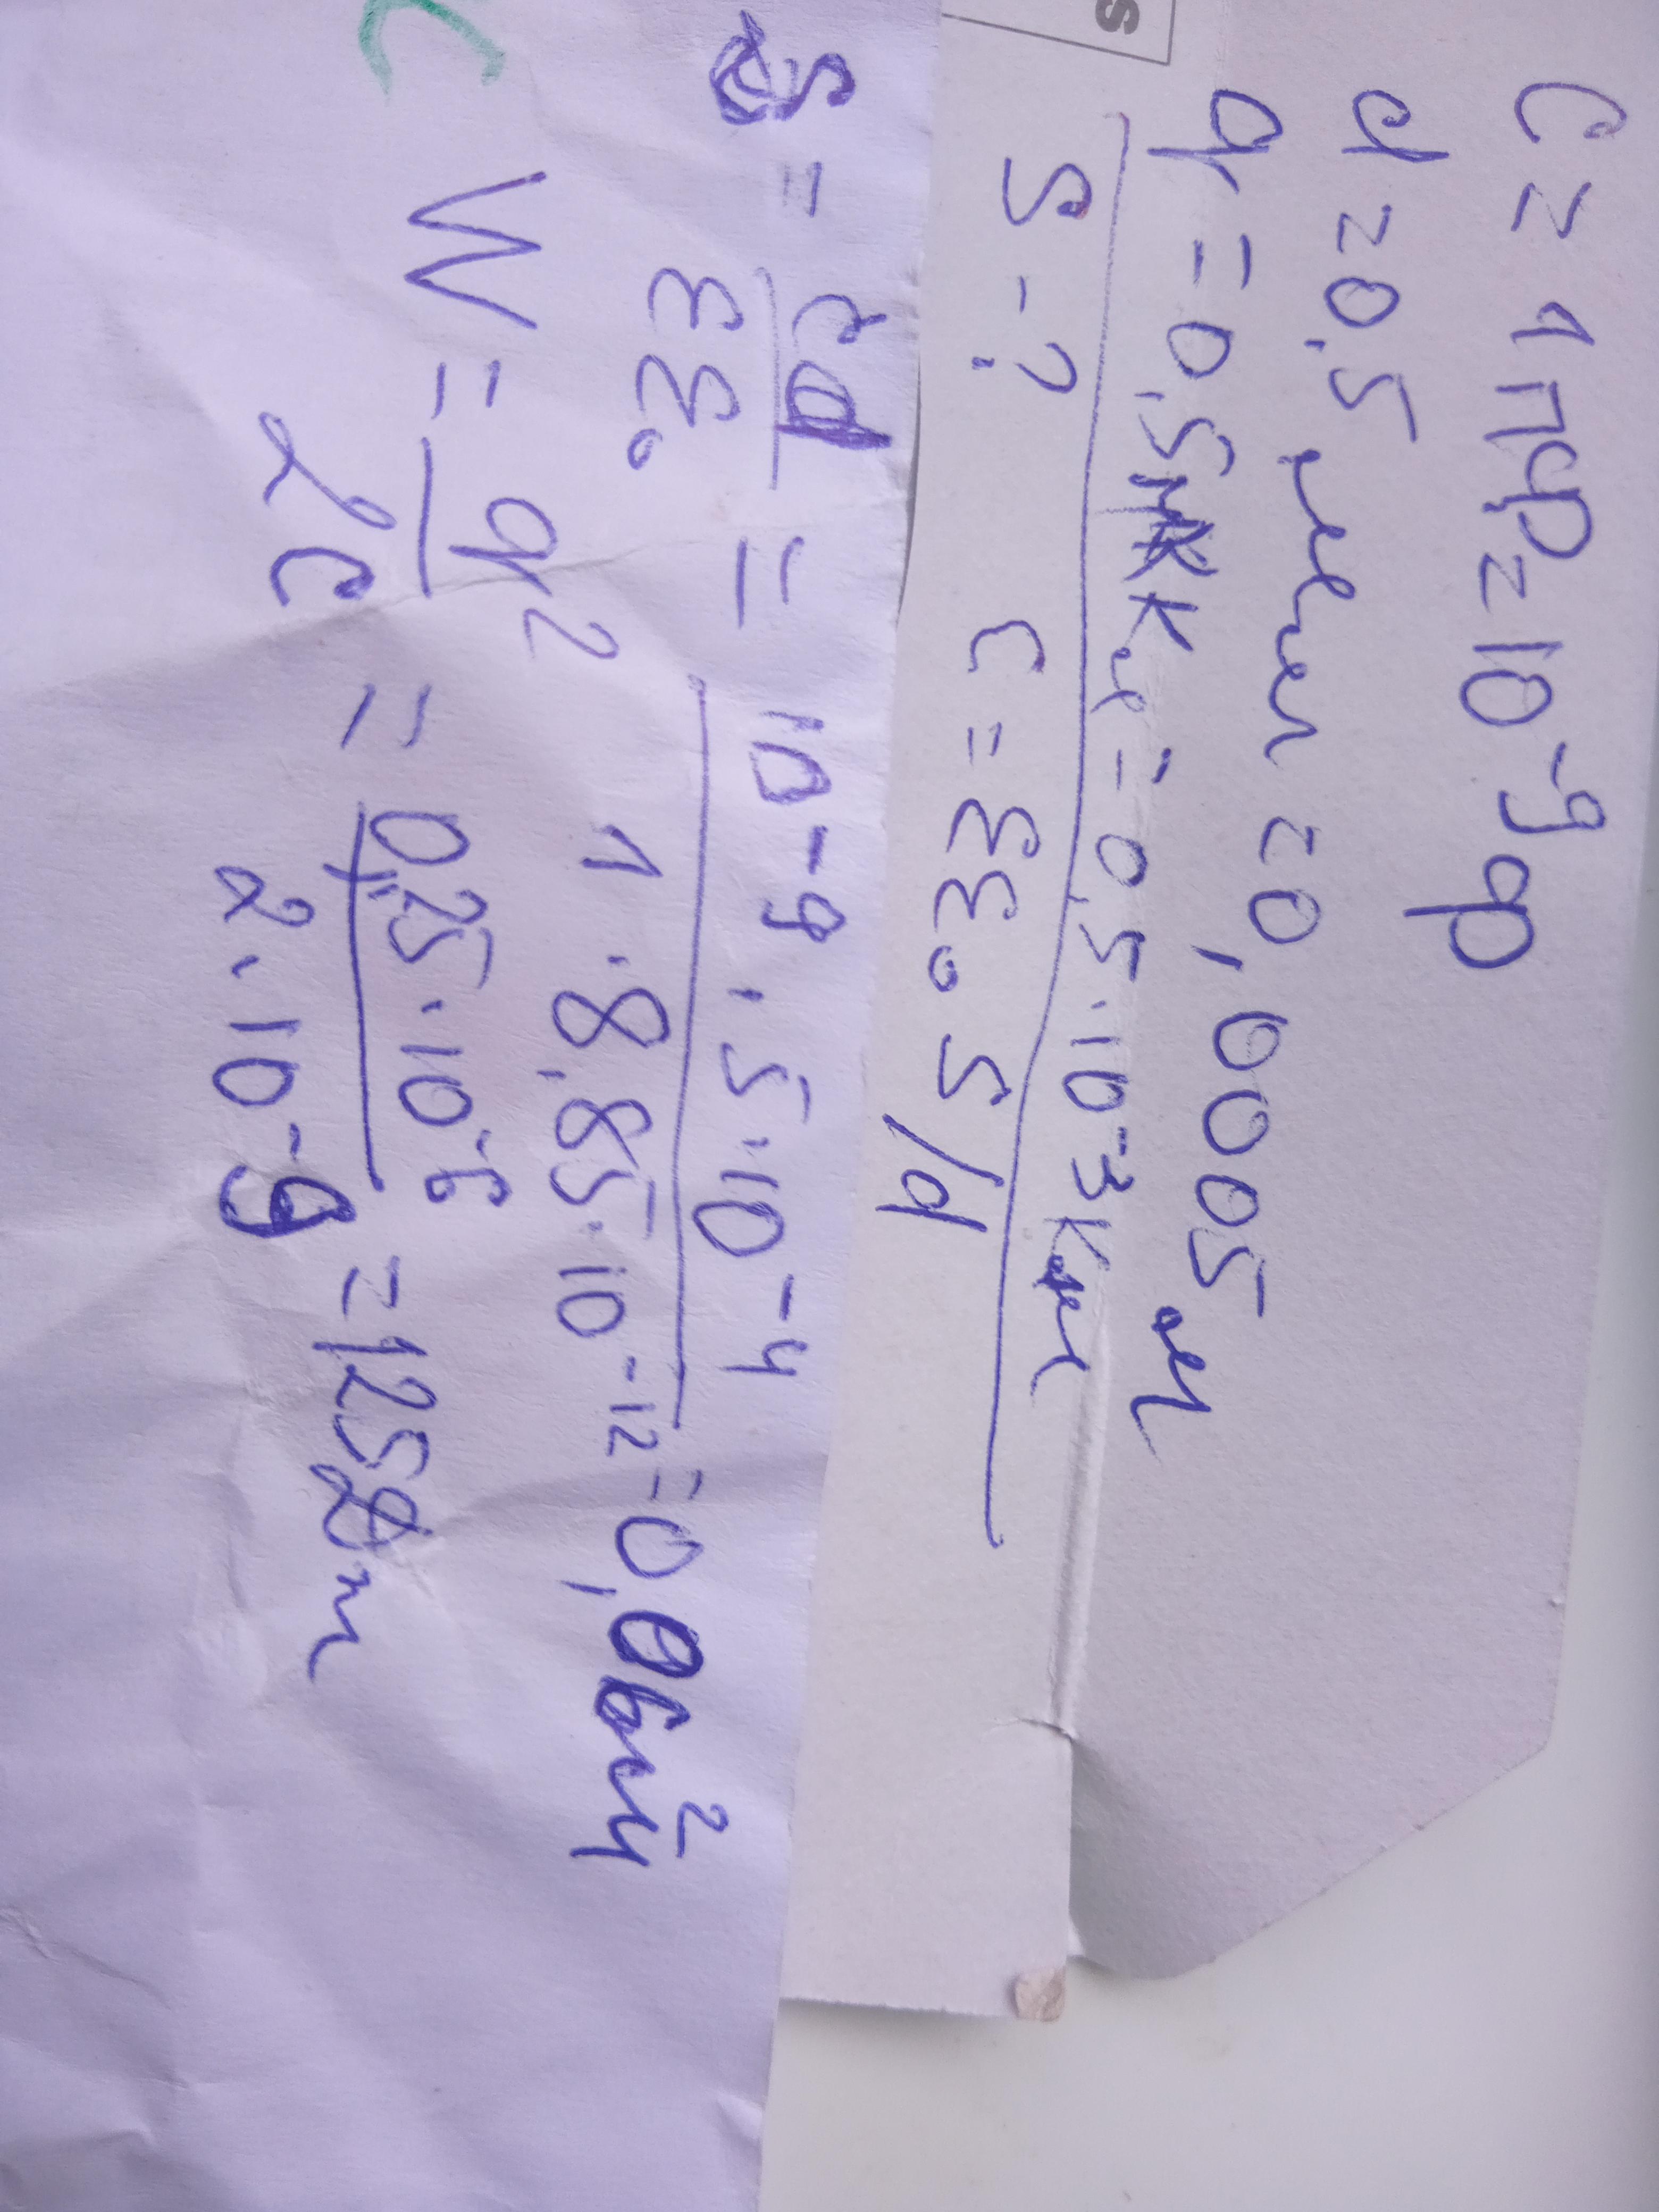 s
C = 1 пФ = 10⁻⁹ ф
d = 0,5 мм = 0,0005 м
q = 0,5 мк Кл = 0,5·10⁻³ Кл
S - ? C = εε₀ S/d
S = Cd/εε₀ = 10⁻⁹·5·10⁻⁴/1·8,85·10⁻¹² = 0,06 м²
W = q²/2C = 0,25·10⁻⁶/2·10⁻⁹ = 125 Дж